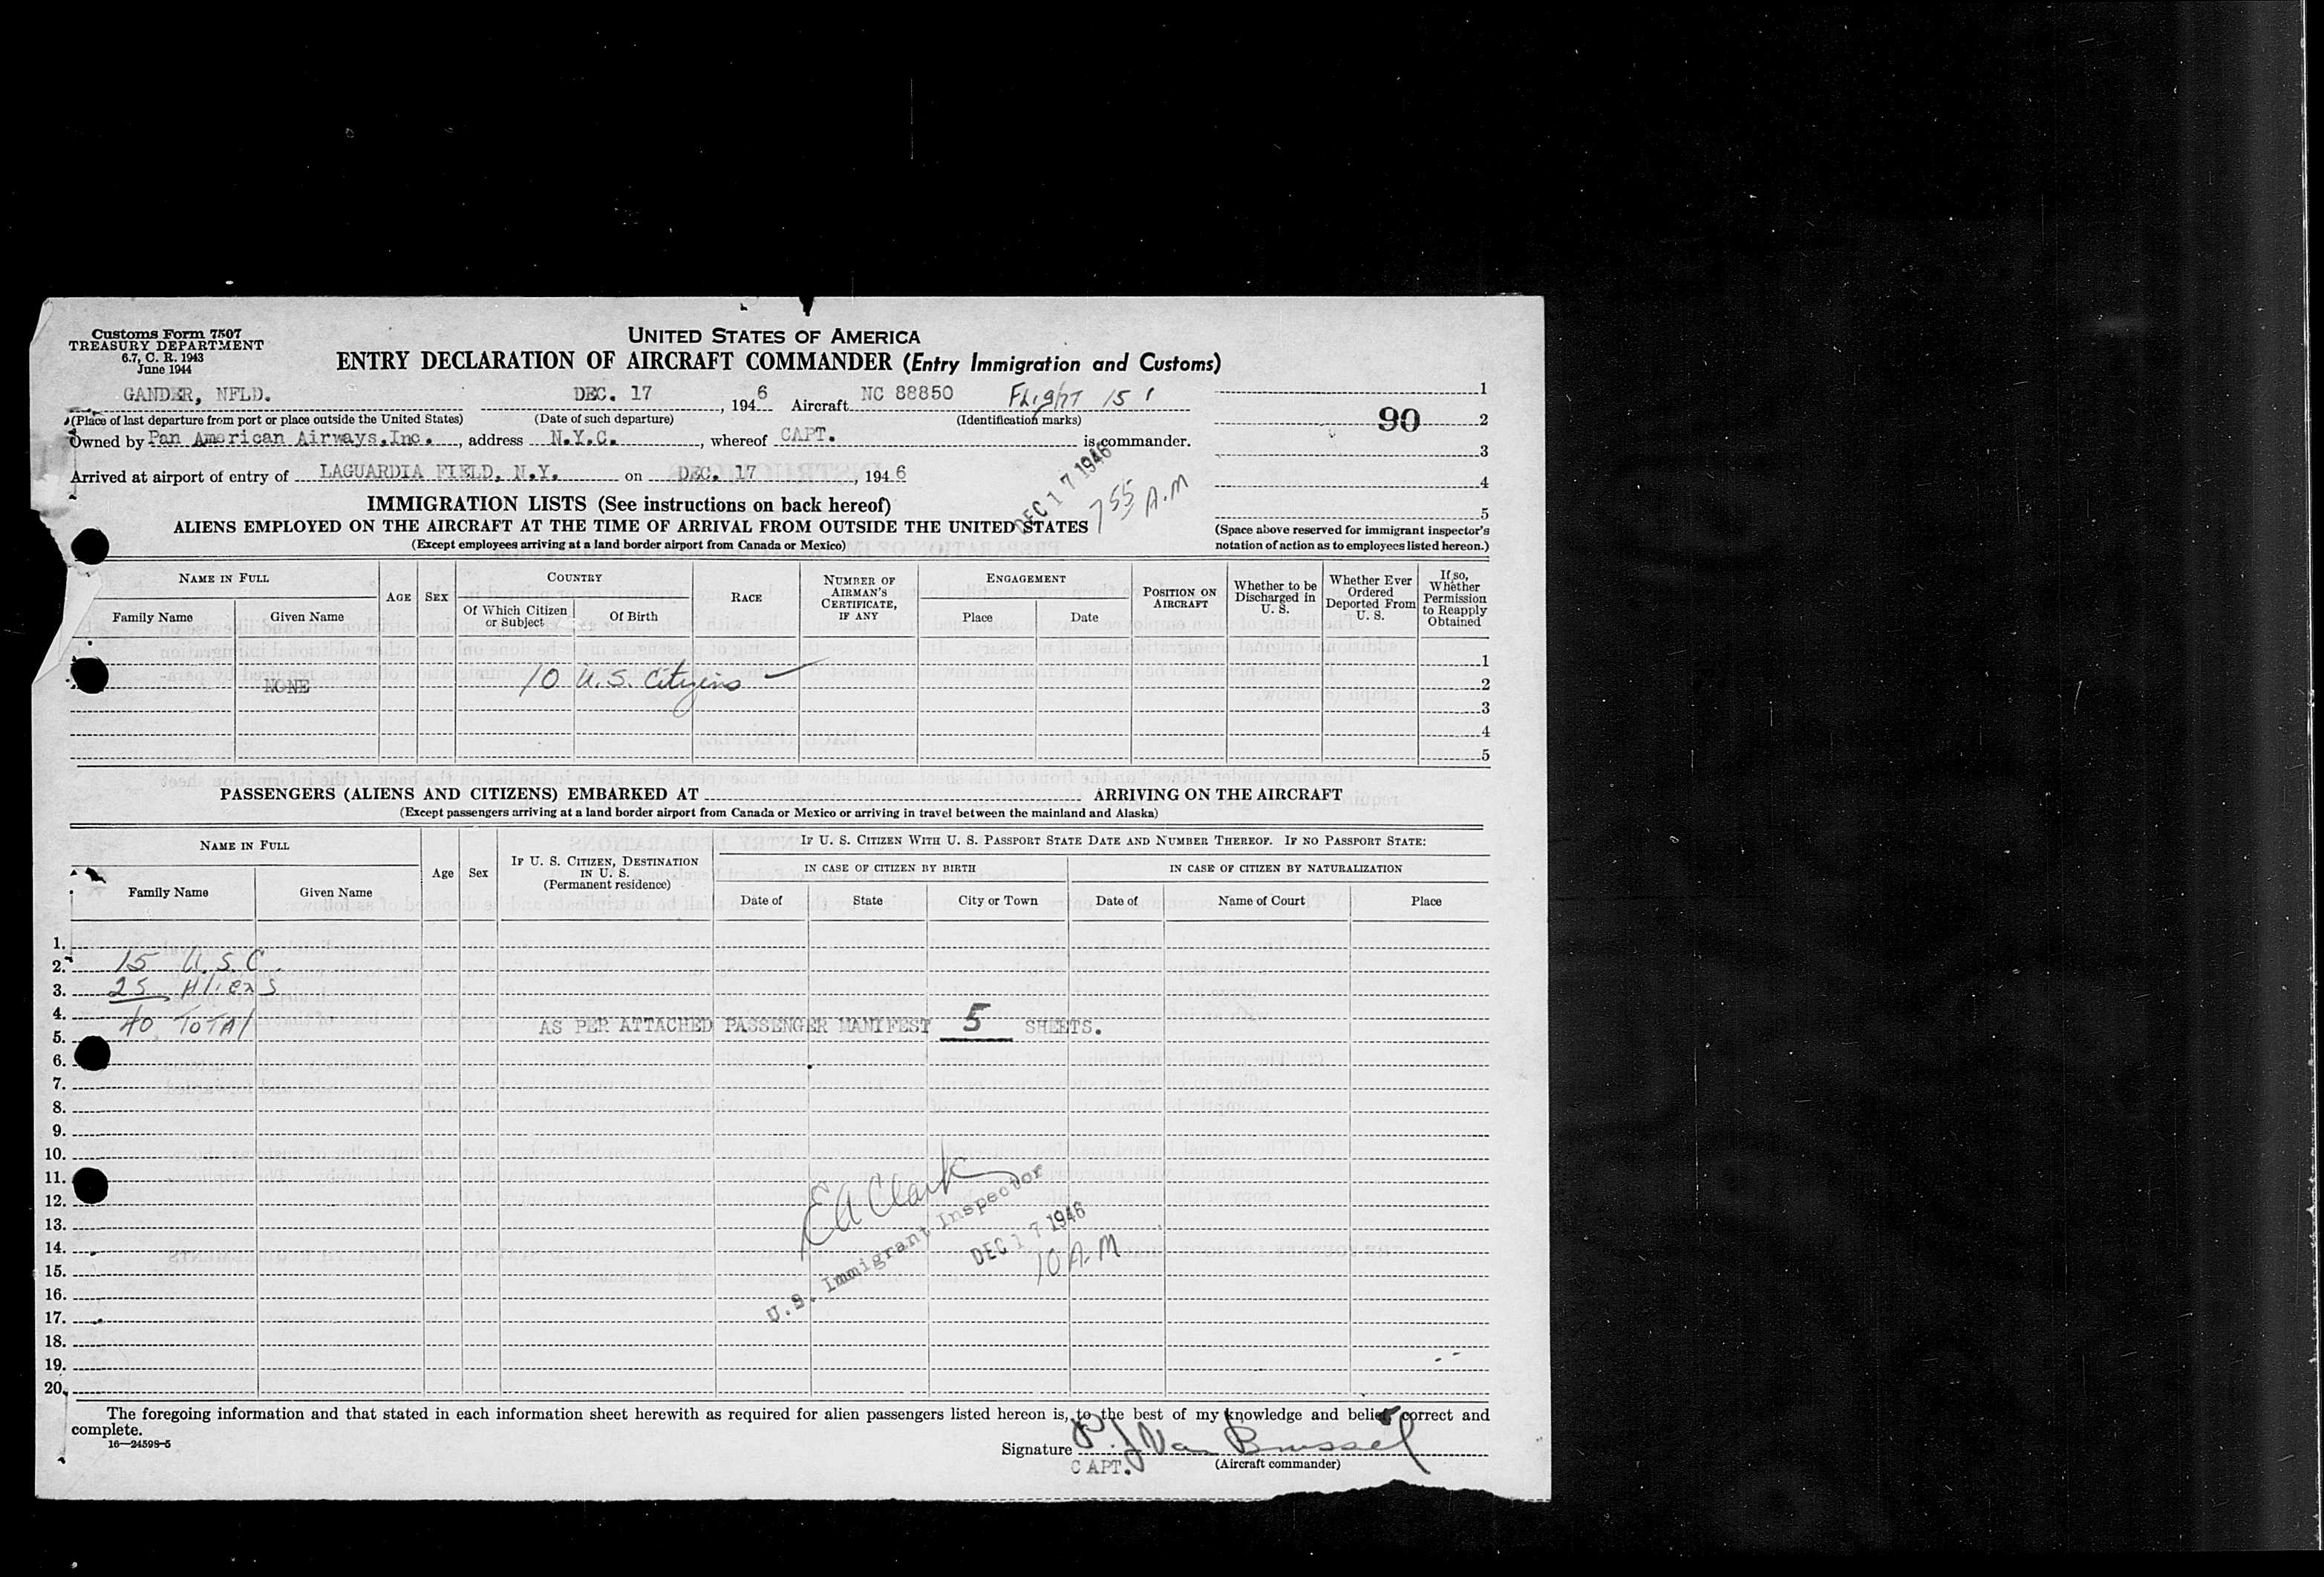 Customs Form 7507
TREASURY DEPARTMENT
6.7, C. R. 1943
June 1944
UNITED STATES OF AMERICA
ENTRY DECLARATION OF AIRCRAFT COMMANDER (Entry Immigration and Customs)
GANDER, NFLD. DEC. 17, 1946 Aircraft NC 88850 Flight 15 1
(Place of last departure from port or place outside the United States) (Date of such departure) (Identification marks)
Owned by Pan American Airways, Inc., address N.Y.C., whereof CAPT. is commander.
Arrived at airport of entry of LAGUARDIA FIELD, N.Y. on DEC. 17, 1946
DEC 17 1946
7 55 A.M
1
90 2
3
4
5
(Space above reserved for immigrant inspector's
notation of action as to employees listed hereon.)
IMMIGRATION LISTS (See instructions on back hereof)
ALIENS EMPLOYED ON THE AIRCRAFT AT THE TIME OF ARRIVAL FROM OUTSIDE THE UNITED STATES
(Except employees arriving at a land border airport from Canada or Mexico)
NAME IN FULL
Family Name
Given Name
AGE
SEX
COUNTRY
Of Which Citizen or Subject
Of Birth
RACE
NUMBER OF AIRMAN'S CERTIFICATE, IF ANY
ENGAGEMENT
Place
Date
POSITION ON AIRCRAFT
Whether to be Discharged in U. S.
Whether Ever Ordered Deported From U. S.
If so, Whether Permission to Reapply Obtained
1
NONE 10 U.S. Citizens 2
3
4
5
PASSENGERS (ALIENS AND CITIZENS) EMBARKED AT ARRIVING ON THE AIRCRAFT
(Except passengers arriving at a land border airport from Canada or Mexico or arriving in travel between the mainland and Alaska)
NAME IN FULL
Family Name
Given Name
Age
Sex
IF U. S. CITIZEN, DESTINATION IN U. S. (Permanent residence)
IF U. S. CITIZEN WITH U. S. PASSPORT STATE DATE AND NUMBER THEREOF. IF NO PASSPORT STATE:
IN CASE OF CITIZEN BY BIRTH
IN CASE OF CITIZEN BY NATURALIZATION
Date of
State
City or Town
Date of
Name of Court
Place
1.
2. 15 U.S.C.
3. 25 Aliens
4. 40 TOTAL AS PER ATTACHED PASSENGER MANIFEST 5 SHEETS.
5.
6.
7.
8.
9.
10.
11.
12.
13.
14.
15.
16.
17.
18.
19.
20.
EA Clark
U.S. Immigrant Inspector
DEC 17 1946
10 A.M
The foregoing information and that stated in each information sheet herewith as required for alien passengers listed hereon is, to the best of my knowledge and belief, correct and
complete.
16—24598-5
Signature P. J Van Brussel
CAPT. (Aircraft commander)